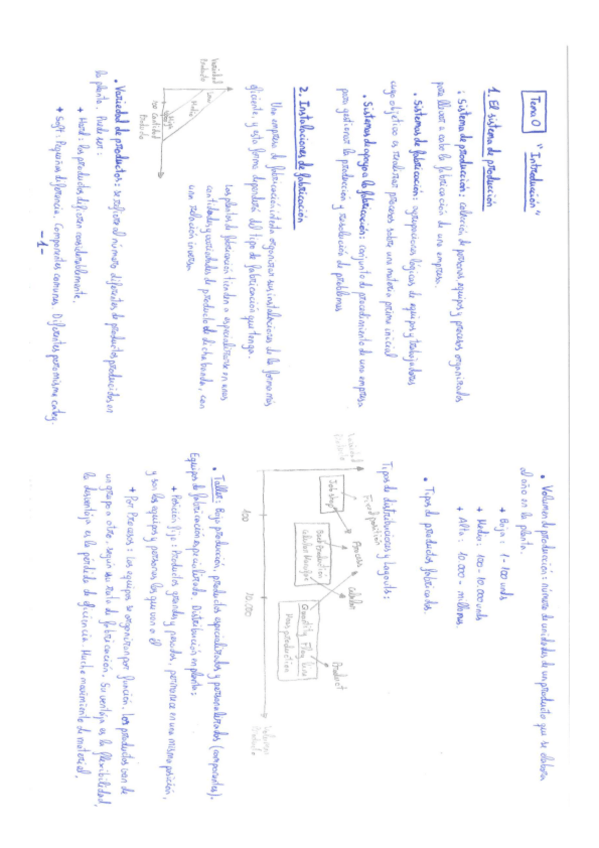 Tema 0 "Introducción"
1. El sistema de producción
• Sistema de producción: colección de personas equipos y procesos organizados
para llevar a cabo la fabricación de una empresa.
• Sistemas de fabricación: agrupaciones lógicas de equipos y trabajadores
cuyo objetivo es realizar procesos sobre una materia prima inicial
• Sistemas de apoyo a la fabricación: conjunto de procedimiento de una empresa
para gestionar la producción y resolución de problemas
2. Instalaciones de fabricación
Una empresa de fabricación debe organizar sus instalaciones de la forma más
eficiente, y esta forma dependerá del tipo de fabricación que tenga.
Las plantas de fabricación tienden a especializarse en unas
cantidades y variedades de producto dicha banda, con
una relación inversa.
Variedad
Producto
Low
Media
High
Cantidad
Producto
• Variedad de productos: se refiere al número diferentes de productos producidos en
la planta. Puede ser:
+ Hard: los productos difieren considerablemente.
+ Soft: Pequeñas diferencia. Componentes comunes. Diferentes pero misma categ.
- 1 -
• Volumen de producción: número de unidades de un producto que se elabora
al año en la planta.
+ Baja: 1 - 100 unds
+ Media: 100 - 10.000 unds
+ Alta: 10.000 - millones.
• Tipos de productos fabricados.
Tipos de distribuciones y Layouts:
Variedad
Producto
Job shop
Fixed position
Process
Batch Production
Cellular Manufac
Cellular
Quantity Flow line
Mass production
Product
100
10.000
Volumen
Producto
• Taller: Baja producción, productos especializados y personalizados (componentes).
Equipos de fabricación especializado. Distribución en planta:
+ Posición fija: Productos grandes y pesados, permanece en una misma posición,
y son los equipos y personas los que van a él
+ Por Proceso: Los equipos se organizan por función. Los productos van de
un grupo a otro, según su ruta de fabricación. Su ventaja es la flexibilidad,
la desventaja es la pérdida de eficiencia. Mucho movimiento de material.